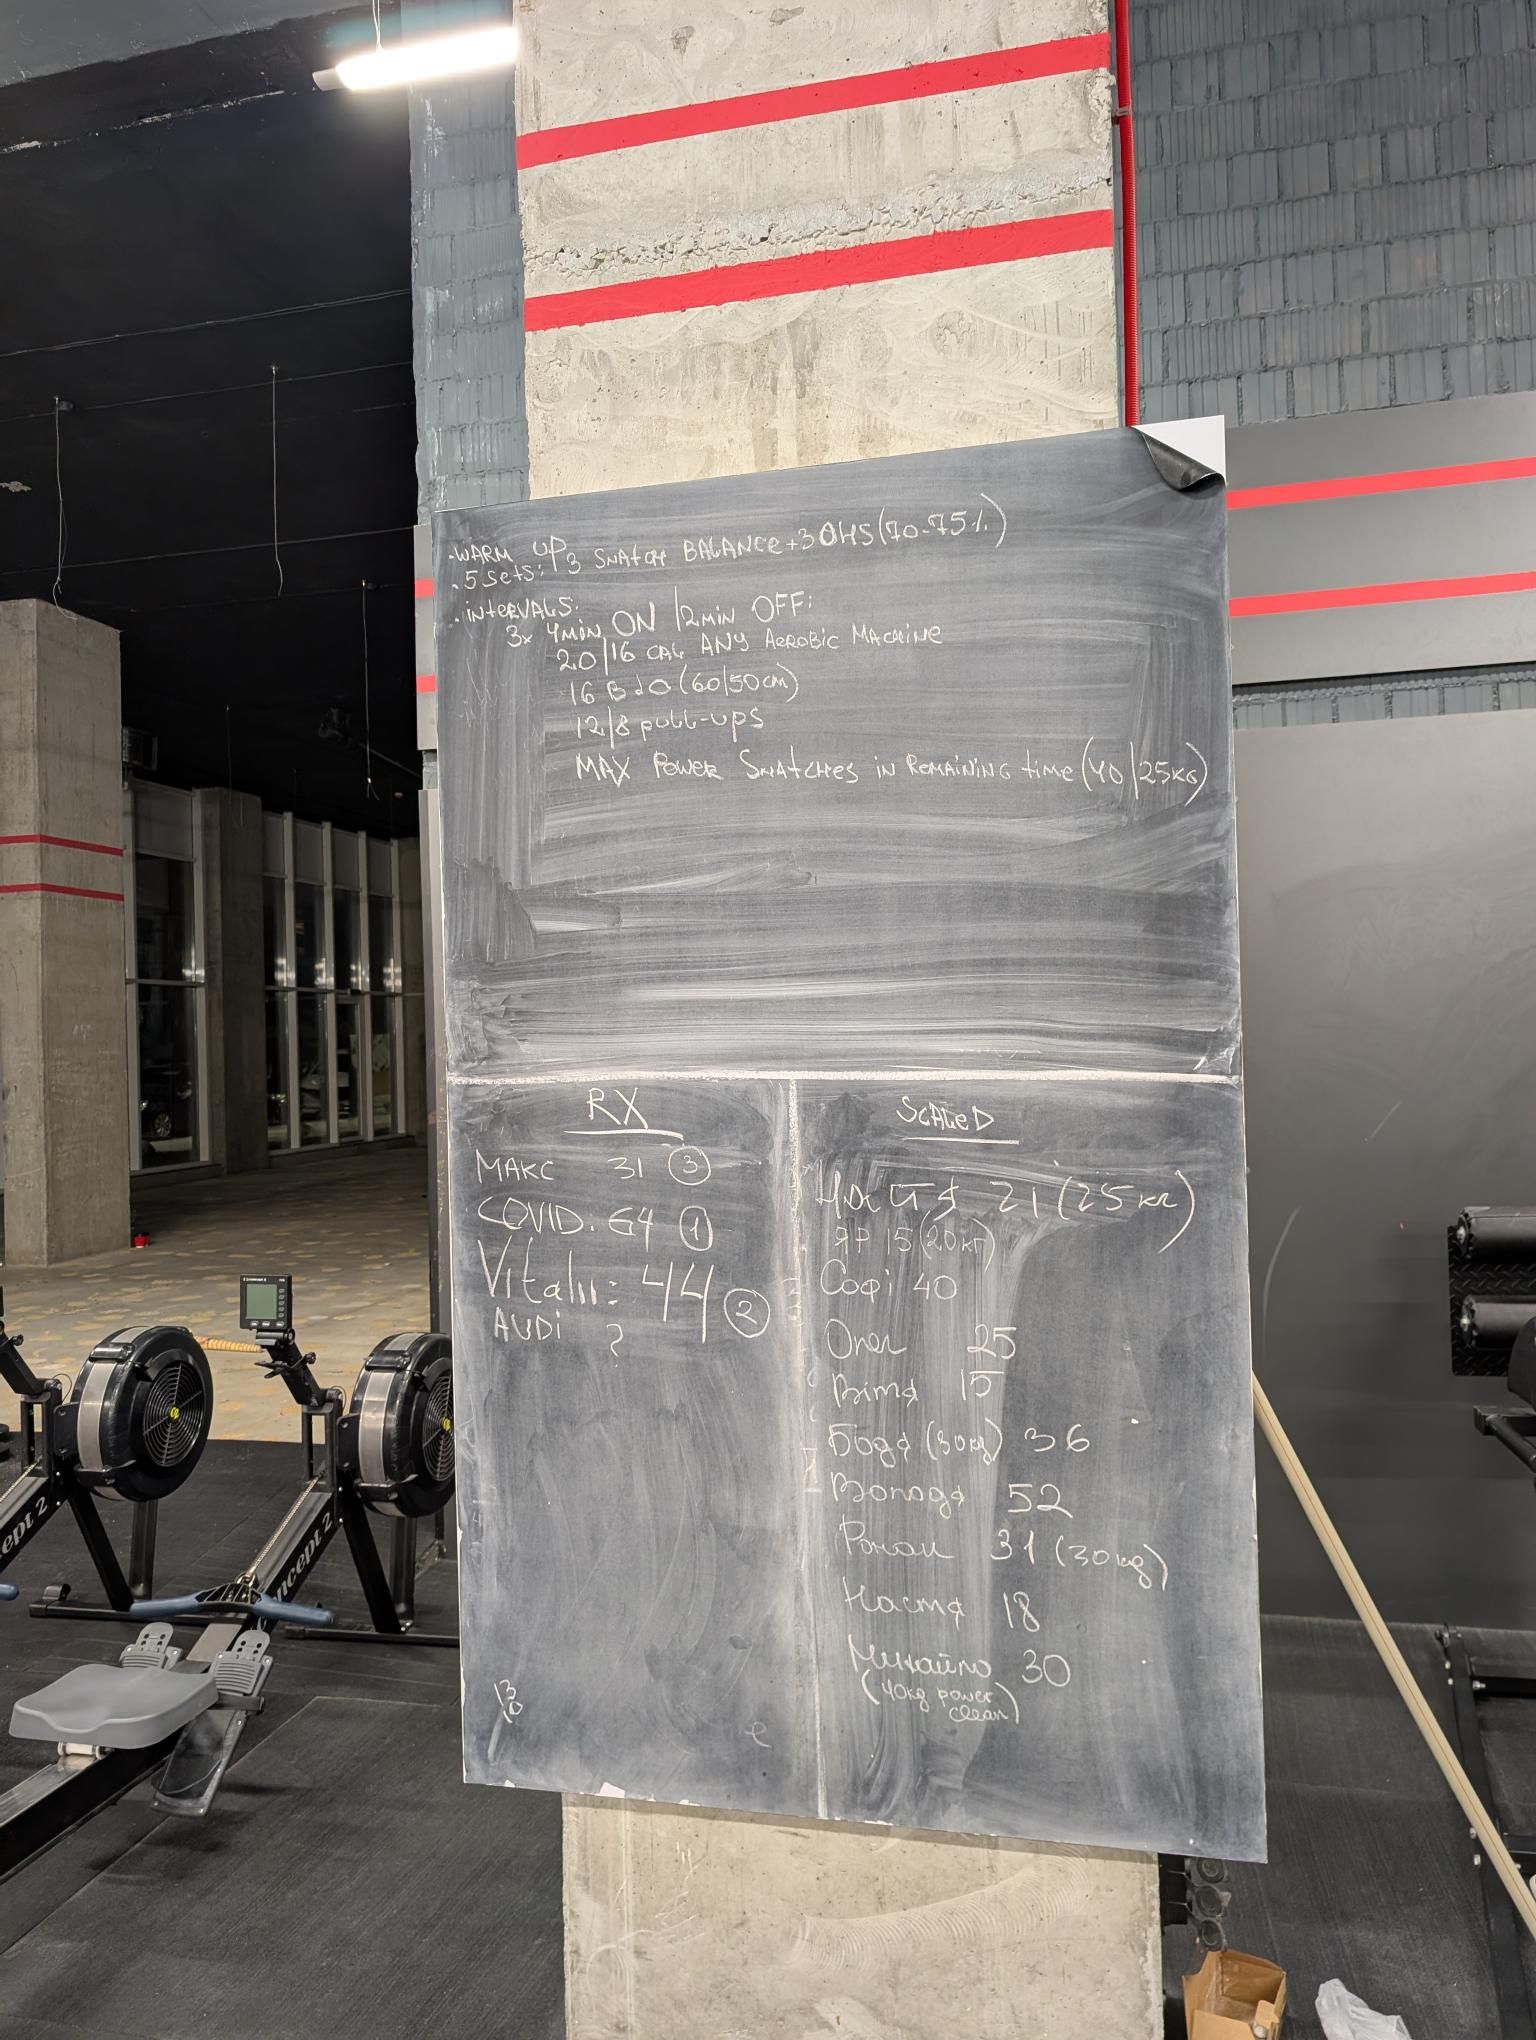 · WARM UP
· 5 Sets: 3 SNATCH BALANCE + 3 OHS (70-75%)
· INTERVALS:
3x 4min ON / 2min OFF:
20/16 CAL ANY AEROBIC MACHINE
16 BJO (60/50cm)
12/8 pull-ups
MAX POWER SNATCHES IN REMAINING TIME (40/25KG)
RX
МАКС 31 ③
COVID. 64 ①
Vitalii: 44 ②
AUDI ?
SCALED
Настя 21 (25кг)
ЯР 15 (20кг)
Софі 40
Олег 25
Вітя 15
Бодя (30kg) 36
Володя 52
Роман 31 (30kg)
Настя 18
Михайло 30
(40kg power clean)
concept 2
concept 2